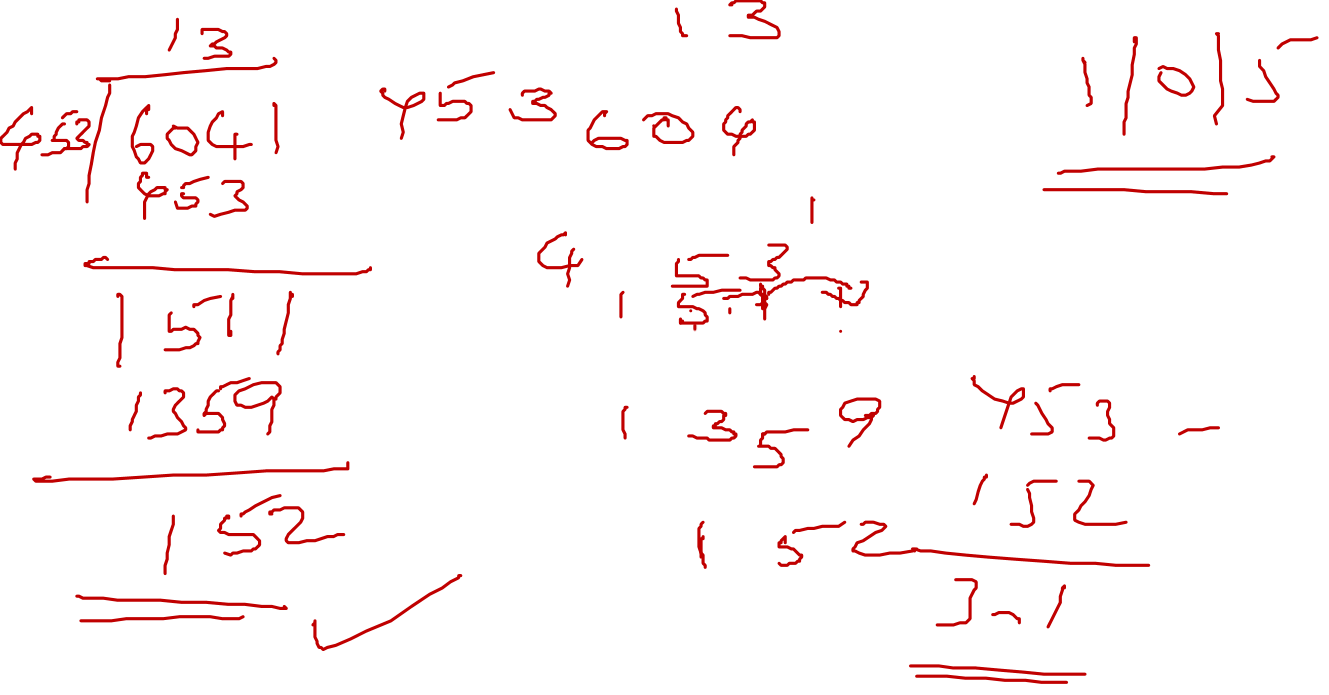 13
453 6041
453
1511
1359
152
13
453 604
1
4 53
1 5
1 359
152
453 -
152
3-1
1|0|5